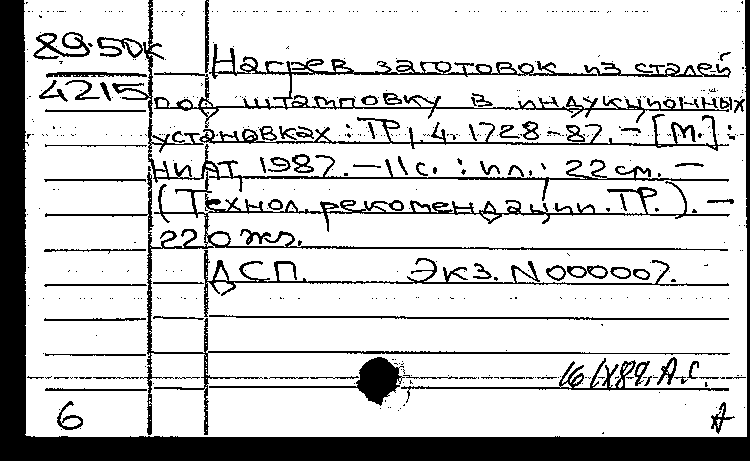 89-5ДК Нагрев заготовок из сталей
4215 под штамповку в индукционных
установках : ТР 1.4.1728-87. - [М.] :
НИАТ, 1987. - 11 с. : ил. ; 22 см. -
(Технол. рекомендации. ТР.). -
220 экз.
ДСП. Экз. N000007.
16 IX 89. А.С.
6